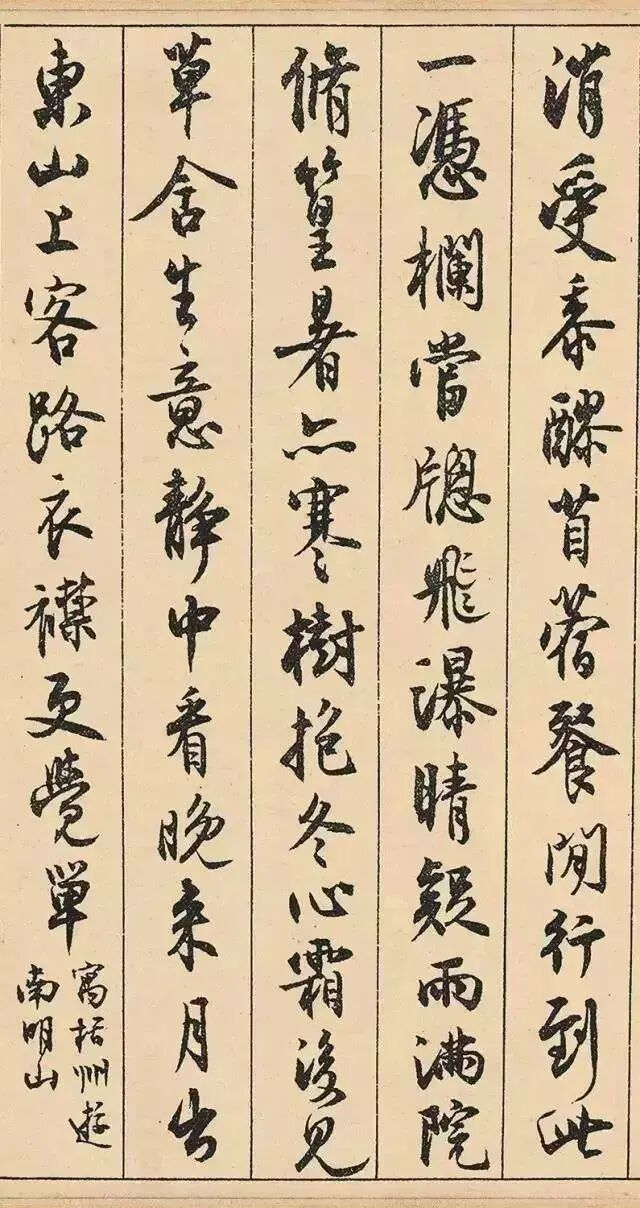 消受黍醪苜蓿餐閒行到此
一憑欄當牕飛瀑晴疑雨滿院
脩篁暑亦寒樹抱冬心霜後見
草含生意靜中看晚来月出
東山上客路衣襟更覺單
寓栝州遊
南明山